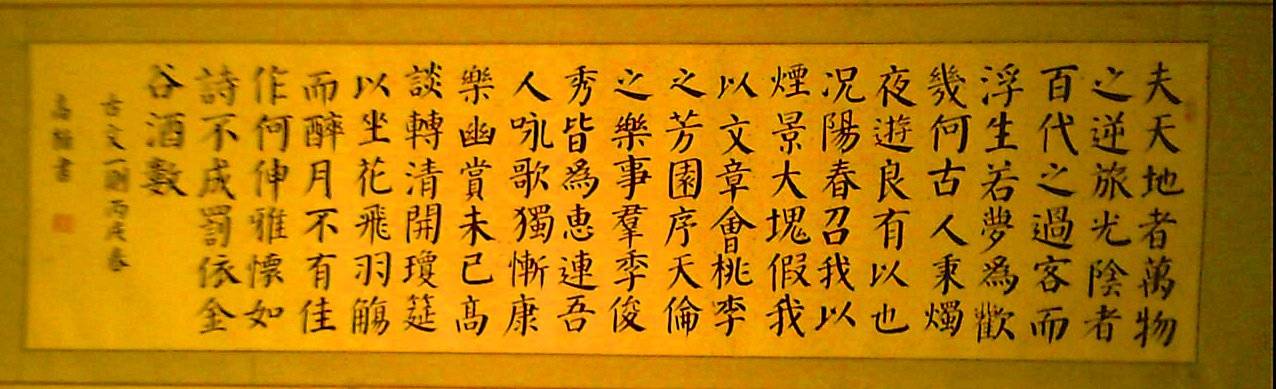 夫天地者萬物
之逆旅光陰者
百代之過客而
浮生若夢為歡
幾何古人秉燭
夜遊良有以也
况陽春召我以
煙景大塊假我
以文章會桃李
之芳園序天倫
之樂事羣季俊
秀皆為恵連吾
人咏歌獨慚康
樂幽賞未已高
談轉清開瓊筵
以坐花飛羽觴
而醉月不有佳
作何伸雅懷如
詩不成罰依金
谷酒數
古文一則丙戌春
書